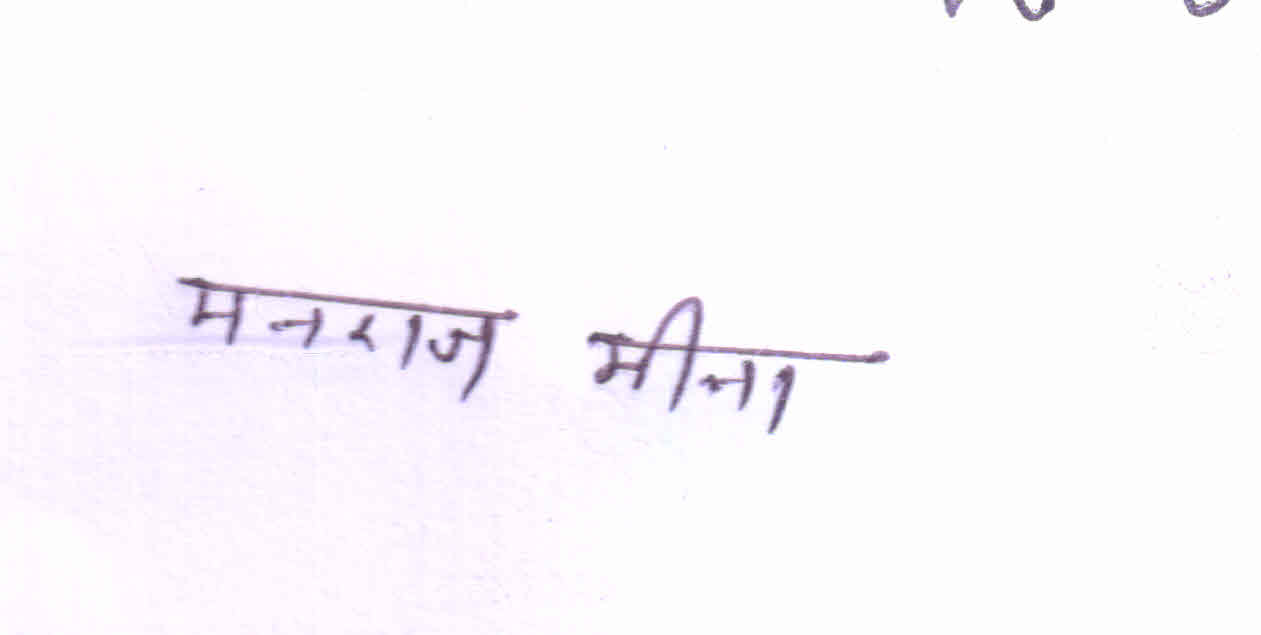 मनराज मीना